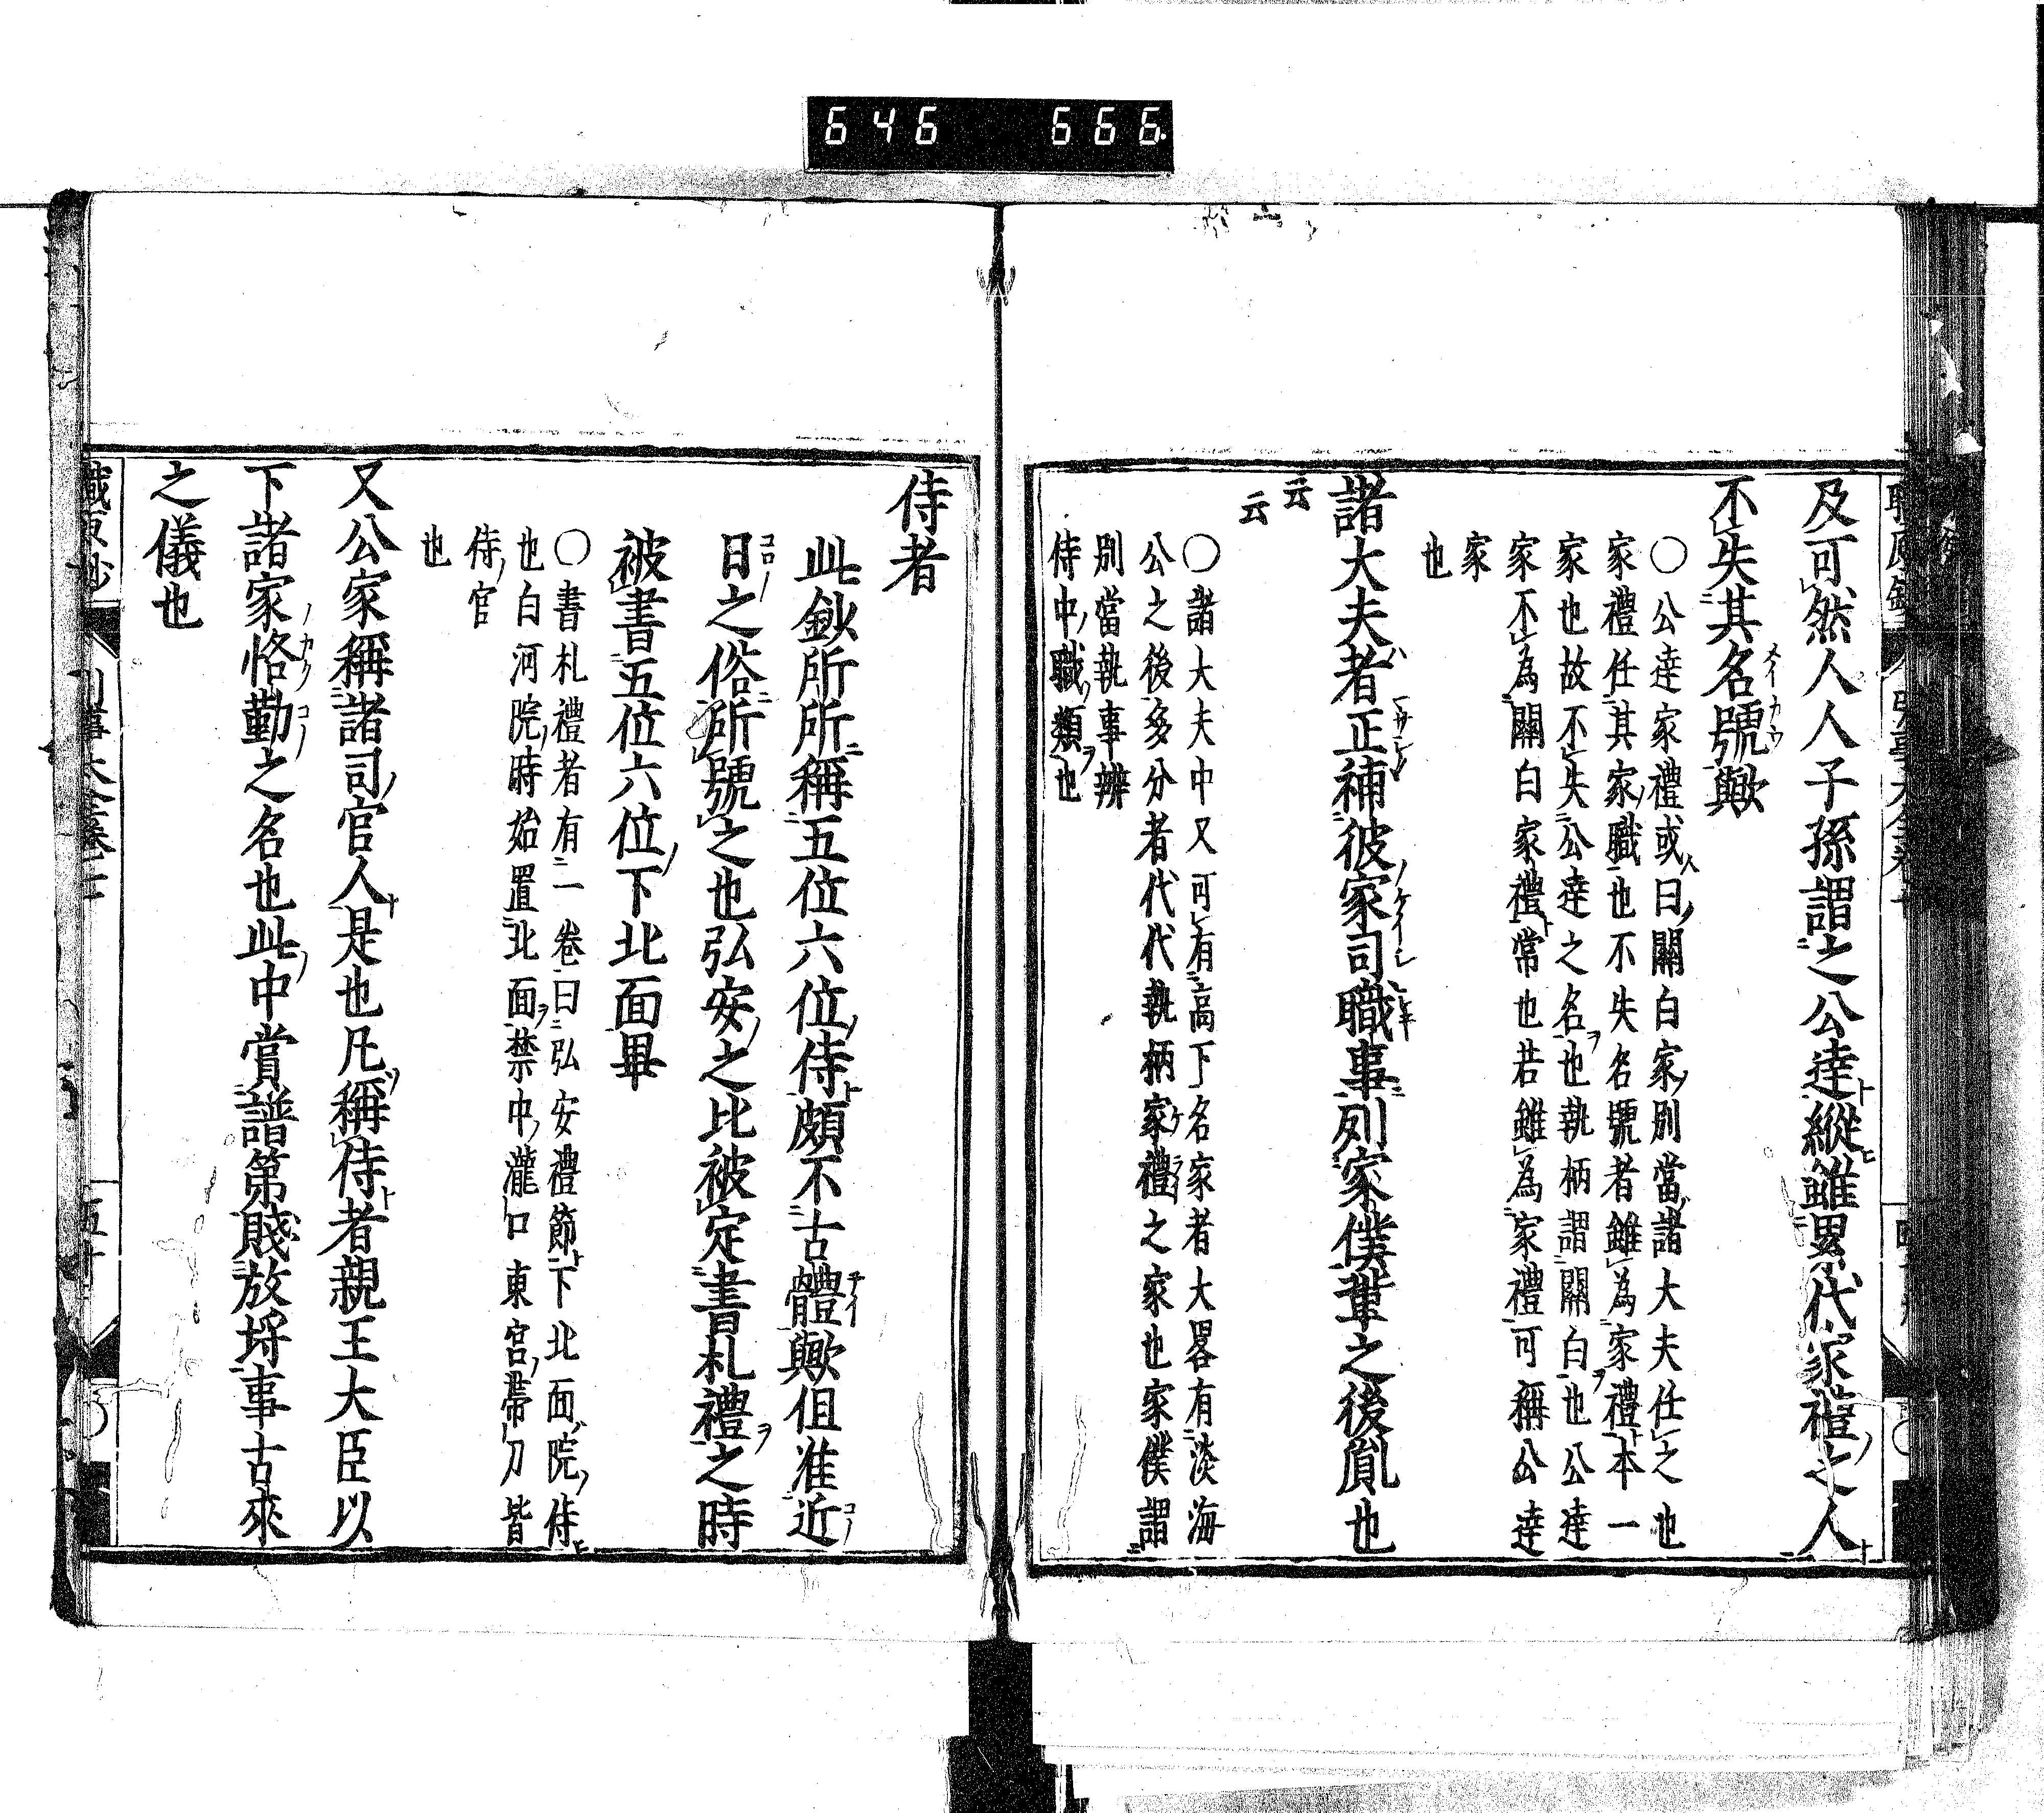 646 666
及可然人人子孫謂之公達縱雖累代家禮之人
不失其名號歟
〇公達家禮或曰關白家別當諸大夫任之也
家禮任其家職也不失名號者雖為家禮本一
家也故不失公達之名也執柄謂關白也公達
家不為關白家禮常也若雖為家禮可稱公達
家
也
諸大夫者正補彼家司職事列家僕輩之後胤也
云
云
〇諸大夫中又可有高下名家者大畧有淡海
公之後多分者代代執柄家禮之家也家僕謂
別當執事辨
侍中職類也
侍者
此鈔所所稱五位六位侍頗不古體歟但准近
日之俗所號之也弘安之比被定書札禮之時
被書五位六位下北面畢
〇書札禮者有一卷曰弘安禮節下北面院侍
也白河院時始置北面禁中瀧口東宮帶刀皆
侍官
也
又公家稱諸司官人是也凡稱侍者親王大臣以
下諸家恪勤之名也此中賞譜第賤放埓事古來
之儀也